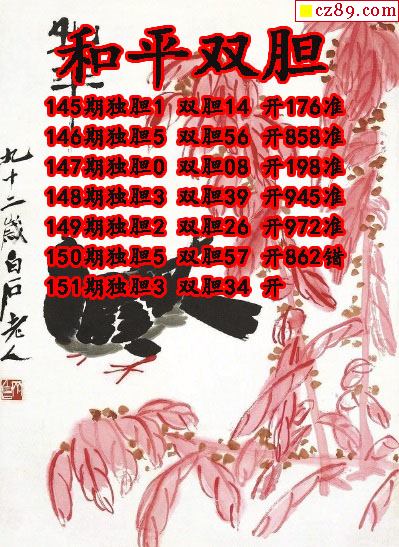 cz89.com
和平双胆
145期独胆1 双胆14 开176准
146期独胆5 双胆56 开858准
147期独胆0 双胆08 开198准
148期独胆3 双胆39 开945准
149期独胆2 双胆26 开972准
150期独胆5 双胆57 开862错
151期独胆3 双胆34 开
九十二歲白石老人